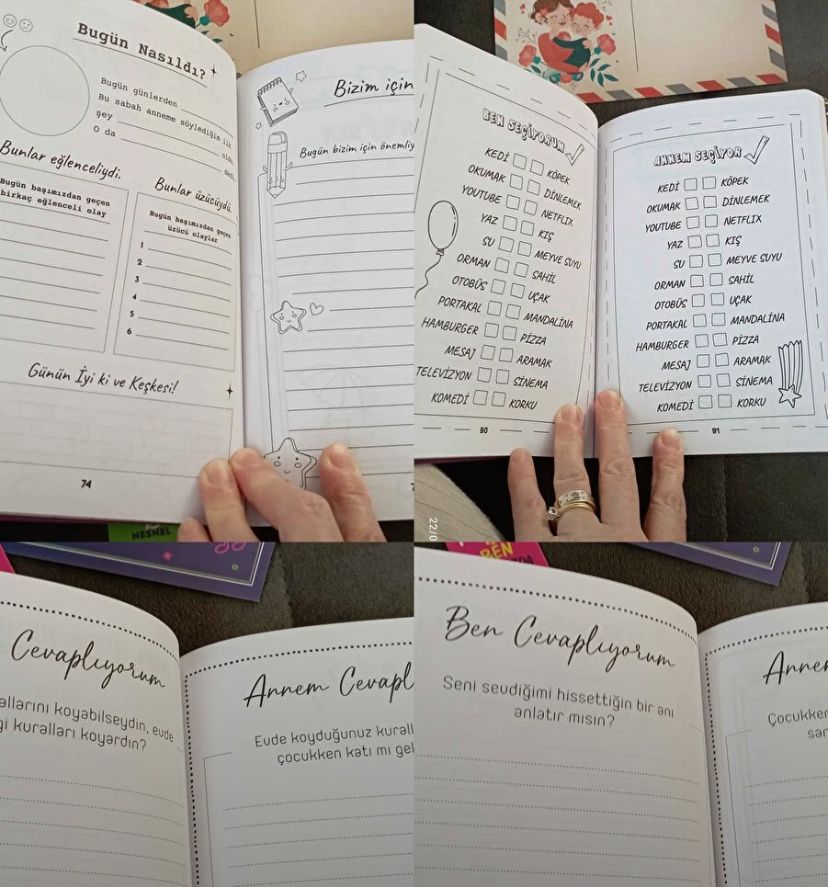 Bugün Nasıldı?
Bugün günlerden
Bu sabah anneme söylediğim ilk
şey
O da
Bunlar eğlenceliydi.
Bugün başımızdan geçen
birkaç eğlenceli olay
Bunlar üzücüydü.
Bugün başımızdan geçen
üzücü olaylar
1
2
3
4
5
6
Günün İyi ki ve Keşkesi!
74
Bizim için
Bugün bizim için önemliy
BEN SEÇİYORUM
KEDİ KÖPEK
OKUMAK DİNLEMEK
YOUTUBE NETFLIX
YAZ KIŞ
SU MEYVE SUYU
ORMAN SAHİL
OTOBÜS UÇAK
PORTAKAL MANDALİNA
HAMBURGER PİZZA
MESAJ ARAMAK
TELEVİZYON SİNEMA
KOMEDİ KORKU
90
ANNEM SEÇİYOR
KEDİ KÖPEK
OKUMAK DİNLEMEK
YOUTUBE NETFLIX
YAZ KIŞ
SU MEYVE SUYU
ORMAN SAHİL
OTOBÜS UÇAK
PORTAKAL MANDALİNA
HAMBURGER PİZZA
MESAJ ARAMAK
TELEVİZYON SİNEMA
KOMEDİ KORKU
91
22/0
Cevaplıyorum
allarını koyabilseydin, evde
gi kuralları koyardın?
Annem Cevapl
Evde koyduğunuz kurall
çocukken katı mı gel
BEN
Ben Cevaplıyorum
Seni sevdiğimi hissettiğin bir anı
anlatır mısın?
Annem
Çocukken